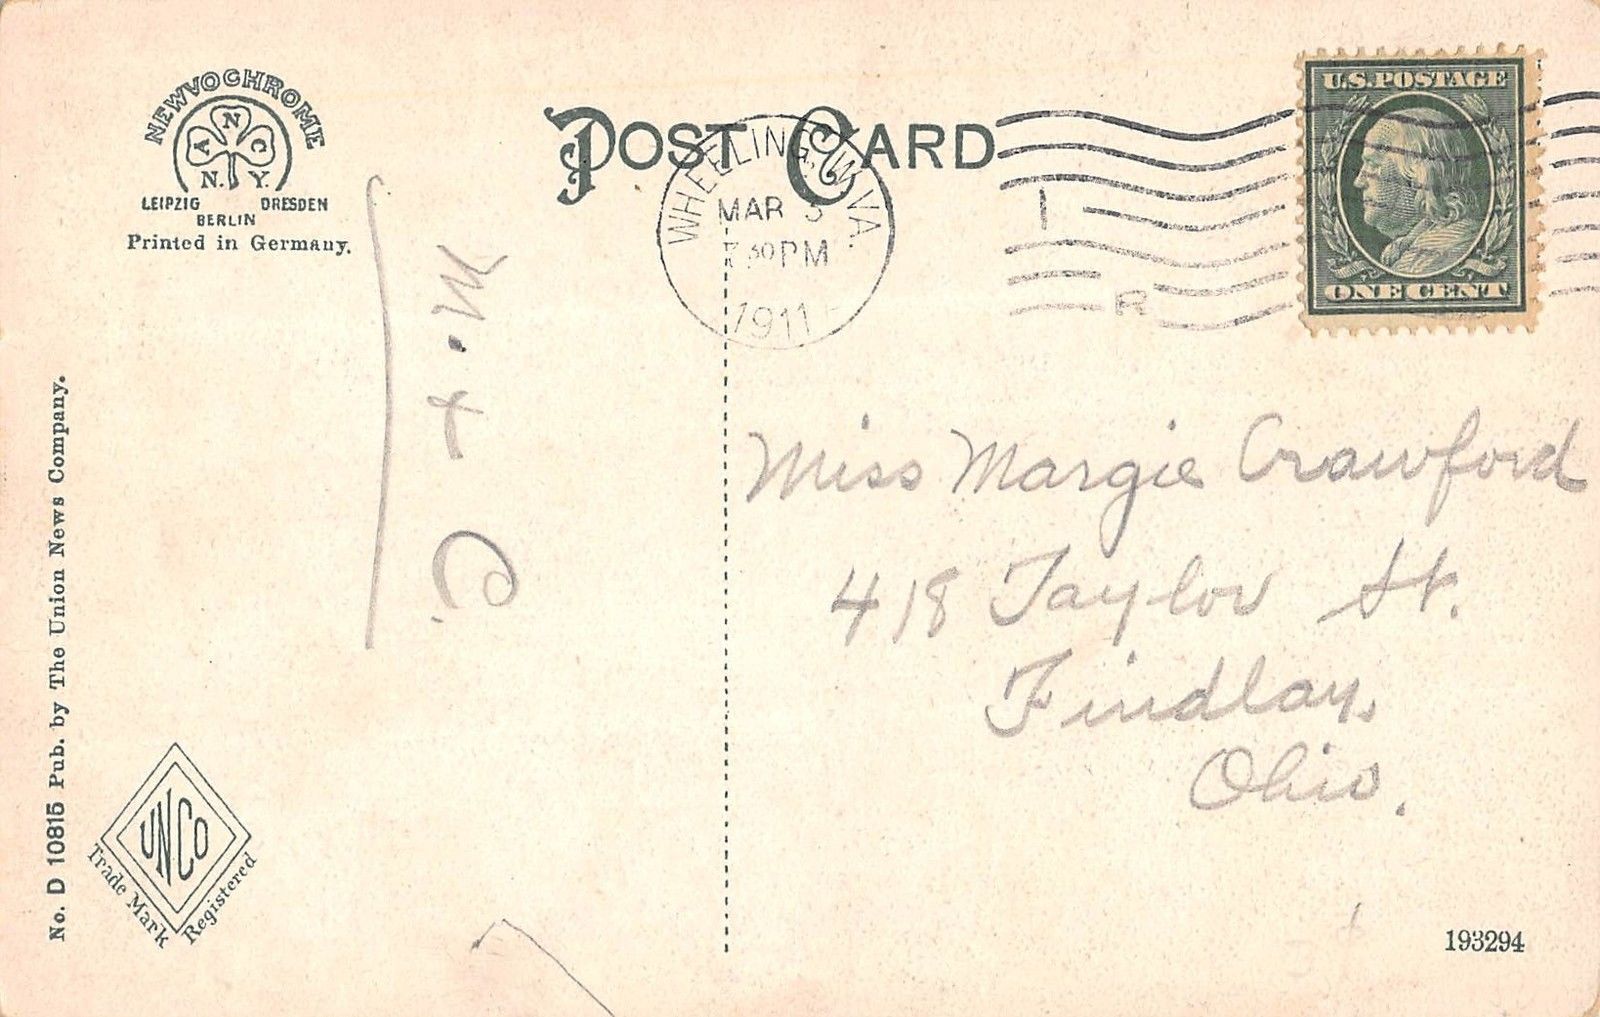 NEWVOCHROME
A N C
N. Y.
LEIPZIG DRESDEN
BERLIN
Printed in Germany.
POST CARD
WHEELING, W. VA.
MAR
30 PM
1911
R
U.S. POSTAGE
ONE CENT
Miss Margie Crawford
418 Taylor St.
Findlay,
Ohio.
No. D 10815 Pub. by The Union News Company.
UNCO
Trade Mark Registered
193294